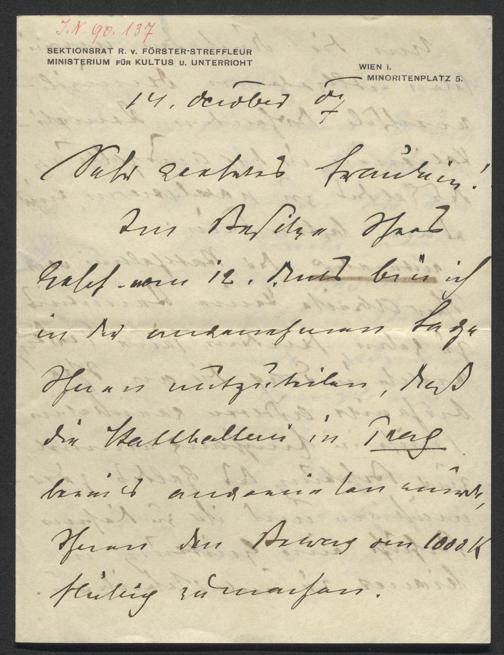 I.N 90.137
SEKTIONSRAT R. v. FÖRSTER-STREFFLEUR
MINISTERIUM FÜR KULTUS U. UNTERRICHT
WIEN I.
MINORITENPLATZ 5.
14. October 07
Sehr geehrtes Fräulein!
Im Besitze Ihres
vom 12. d. bin ich
in der angenehmen Lage
Ihnen mitzuteilen, daß
die Statthalterei in Prag
bereits angewiesen wurde,
Ihnen den Betrag von 1000 K
flüssig zu machen.